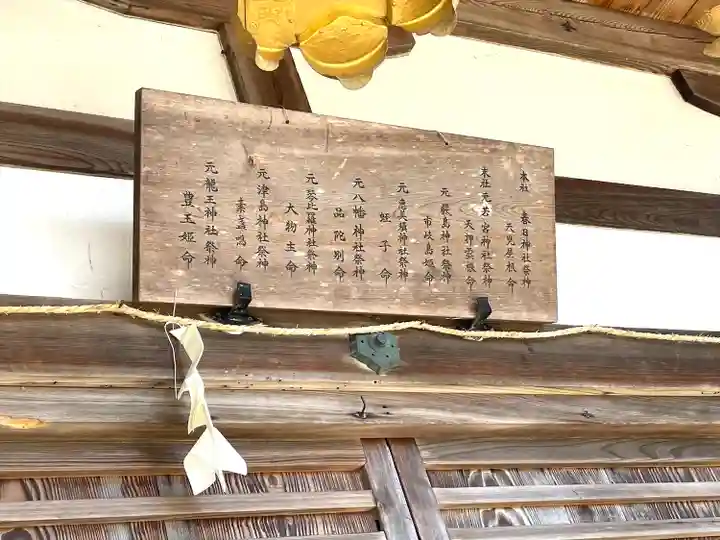 本社 春日神社祭神
天児屋根命
末社 元若宮神社祭神
天押雲根命
元 厳島神社祭神
市杵島姫命
元 恵美須神社祭神
蛭子命
元八幡神社祭神
品陀別命
元琴比羅神社祭神
大物主命
元津島神社祭神
素盞鳴命
元龍王神社祭神
豊玉姫命